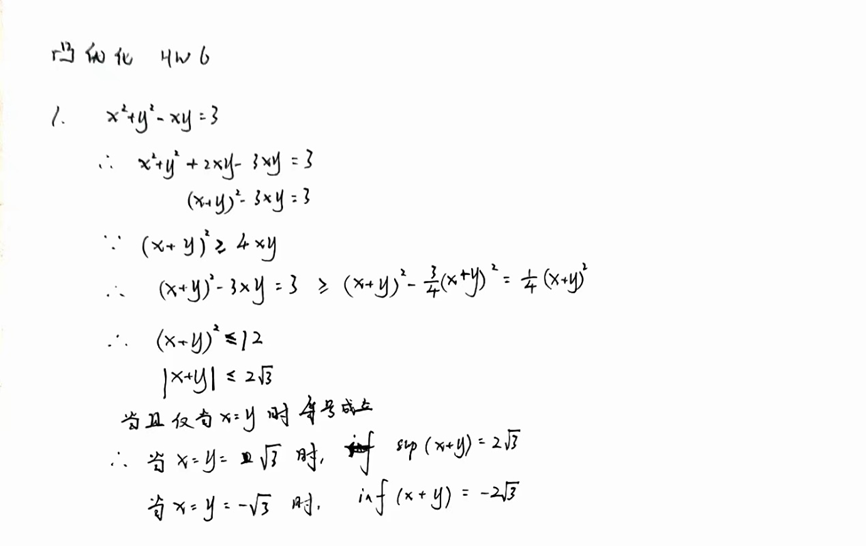 凸优化 HW6
1. x²+y²-xy=3
∴ x²+y²+2xy-3xy=3
(x+y)²-3xy=3
∵ (x+y)²≥4xy
∴ (x+y)²-3xy=3 ≥ (x+y)²-3/4(x+y)²=1/4(x+y)²
∴ (x+y)²≤12
|x+y|≤2√3
当且仅当x=y时等号成立
∴ 当x=y=√3时, sup(x+y)=2√3
当x=y=-√3时, inf(x+y)=-2√3